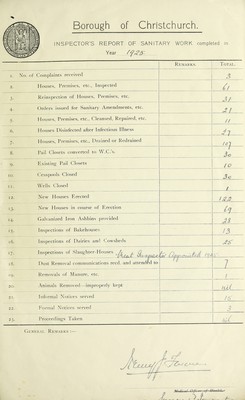 Borough of Christchurch.
INSPECTOR'S REPORT OF SANITARY WORK completed in
Year 1925
REMARKS. TOTAL.
1. No. of Complaints received 3
2. Houses, Premises, etc., Inspected 61
3. Reinspection of Houses, Premises, etc. 31
4. Orders issued for Sanitary Amendments, etc. 27
5. Houses, Premises, etc., Cleansed, Repaired, etc. 11
6. Houses Disinfected after Infectious Illness 27
7. Houses, Premises, etc., Drained or Redrained 107
8. Pail Closets converted to W.C.'s. 30
9. Existing Pail Closets 10
10. Cesspools Closed 30
11. Wells Closed 1
12. New Houses Erected 122
13. New Houses in course of Erection 69
14. Galvanised Iron Ashbins provided 28
15. Inspections of Bakehouses 13
16. Inspections of Dairies and Cowsheds 25
17. Inspections of Slaughter-Houses Meat Inspector Appointed
18. Dust Removal communications recd. and attended to 7
19. Removals of Manure, etc. 1
20. Animals Removed—improperly kept nil
21. Informal Notices served
22. Formal Notices served
23. Proceedings Taken nil
GENERAL REMARKS:—